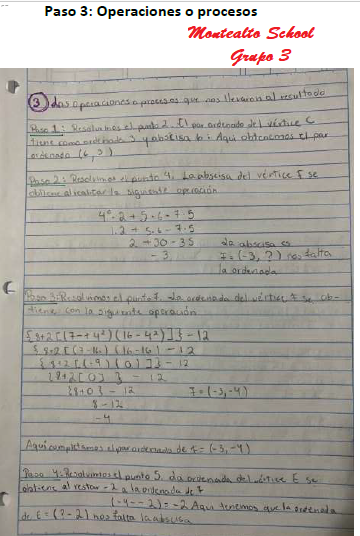 Paso 3: Operaciones o procesos
Montealto School
Grupo 3
3 Las operaciones o procesos que nos llevaron al resultado
Paso 1: Resolvimos el punto 2. El par ordenado del vértice C
tiene como ordenada 3 y abscisa 6. Aqui obtenemos el par
ordenado (6,3)
Paso 2: Resolvimos el punto 4. La abscisa del vértice F se
obtiene al realizar la siguiente operación
4°·2+5·6-7·5
1·2+5·6-7·5
2+30-35
-3
La abscisa es
F=(-3,?) nos falta
la ordenada
Paso 3: Resolvimos el punto 7. La ordenada del vértice F se ob-
tiene con la siguiente operación
{8+2[(7-+4²)(16-4²)]}-12
{8+2[(7-16)(16-16)-12
{8+2[(-9)(0)]}-12
{8+2[0]}-12
{8+0}-12
F=(-3,-4)
8-12
-4
Aqui completamos el par ordenado de F=(-3,-4)
Paso 4: Resolvimos el punto 5. La ordenada del vértice E se
obtiene al restar -2 a la ordenada de F
(-4--2)=-2. Aqui tenemos que la ordenada
de E=(?-2) nos falta la abscisa